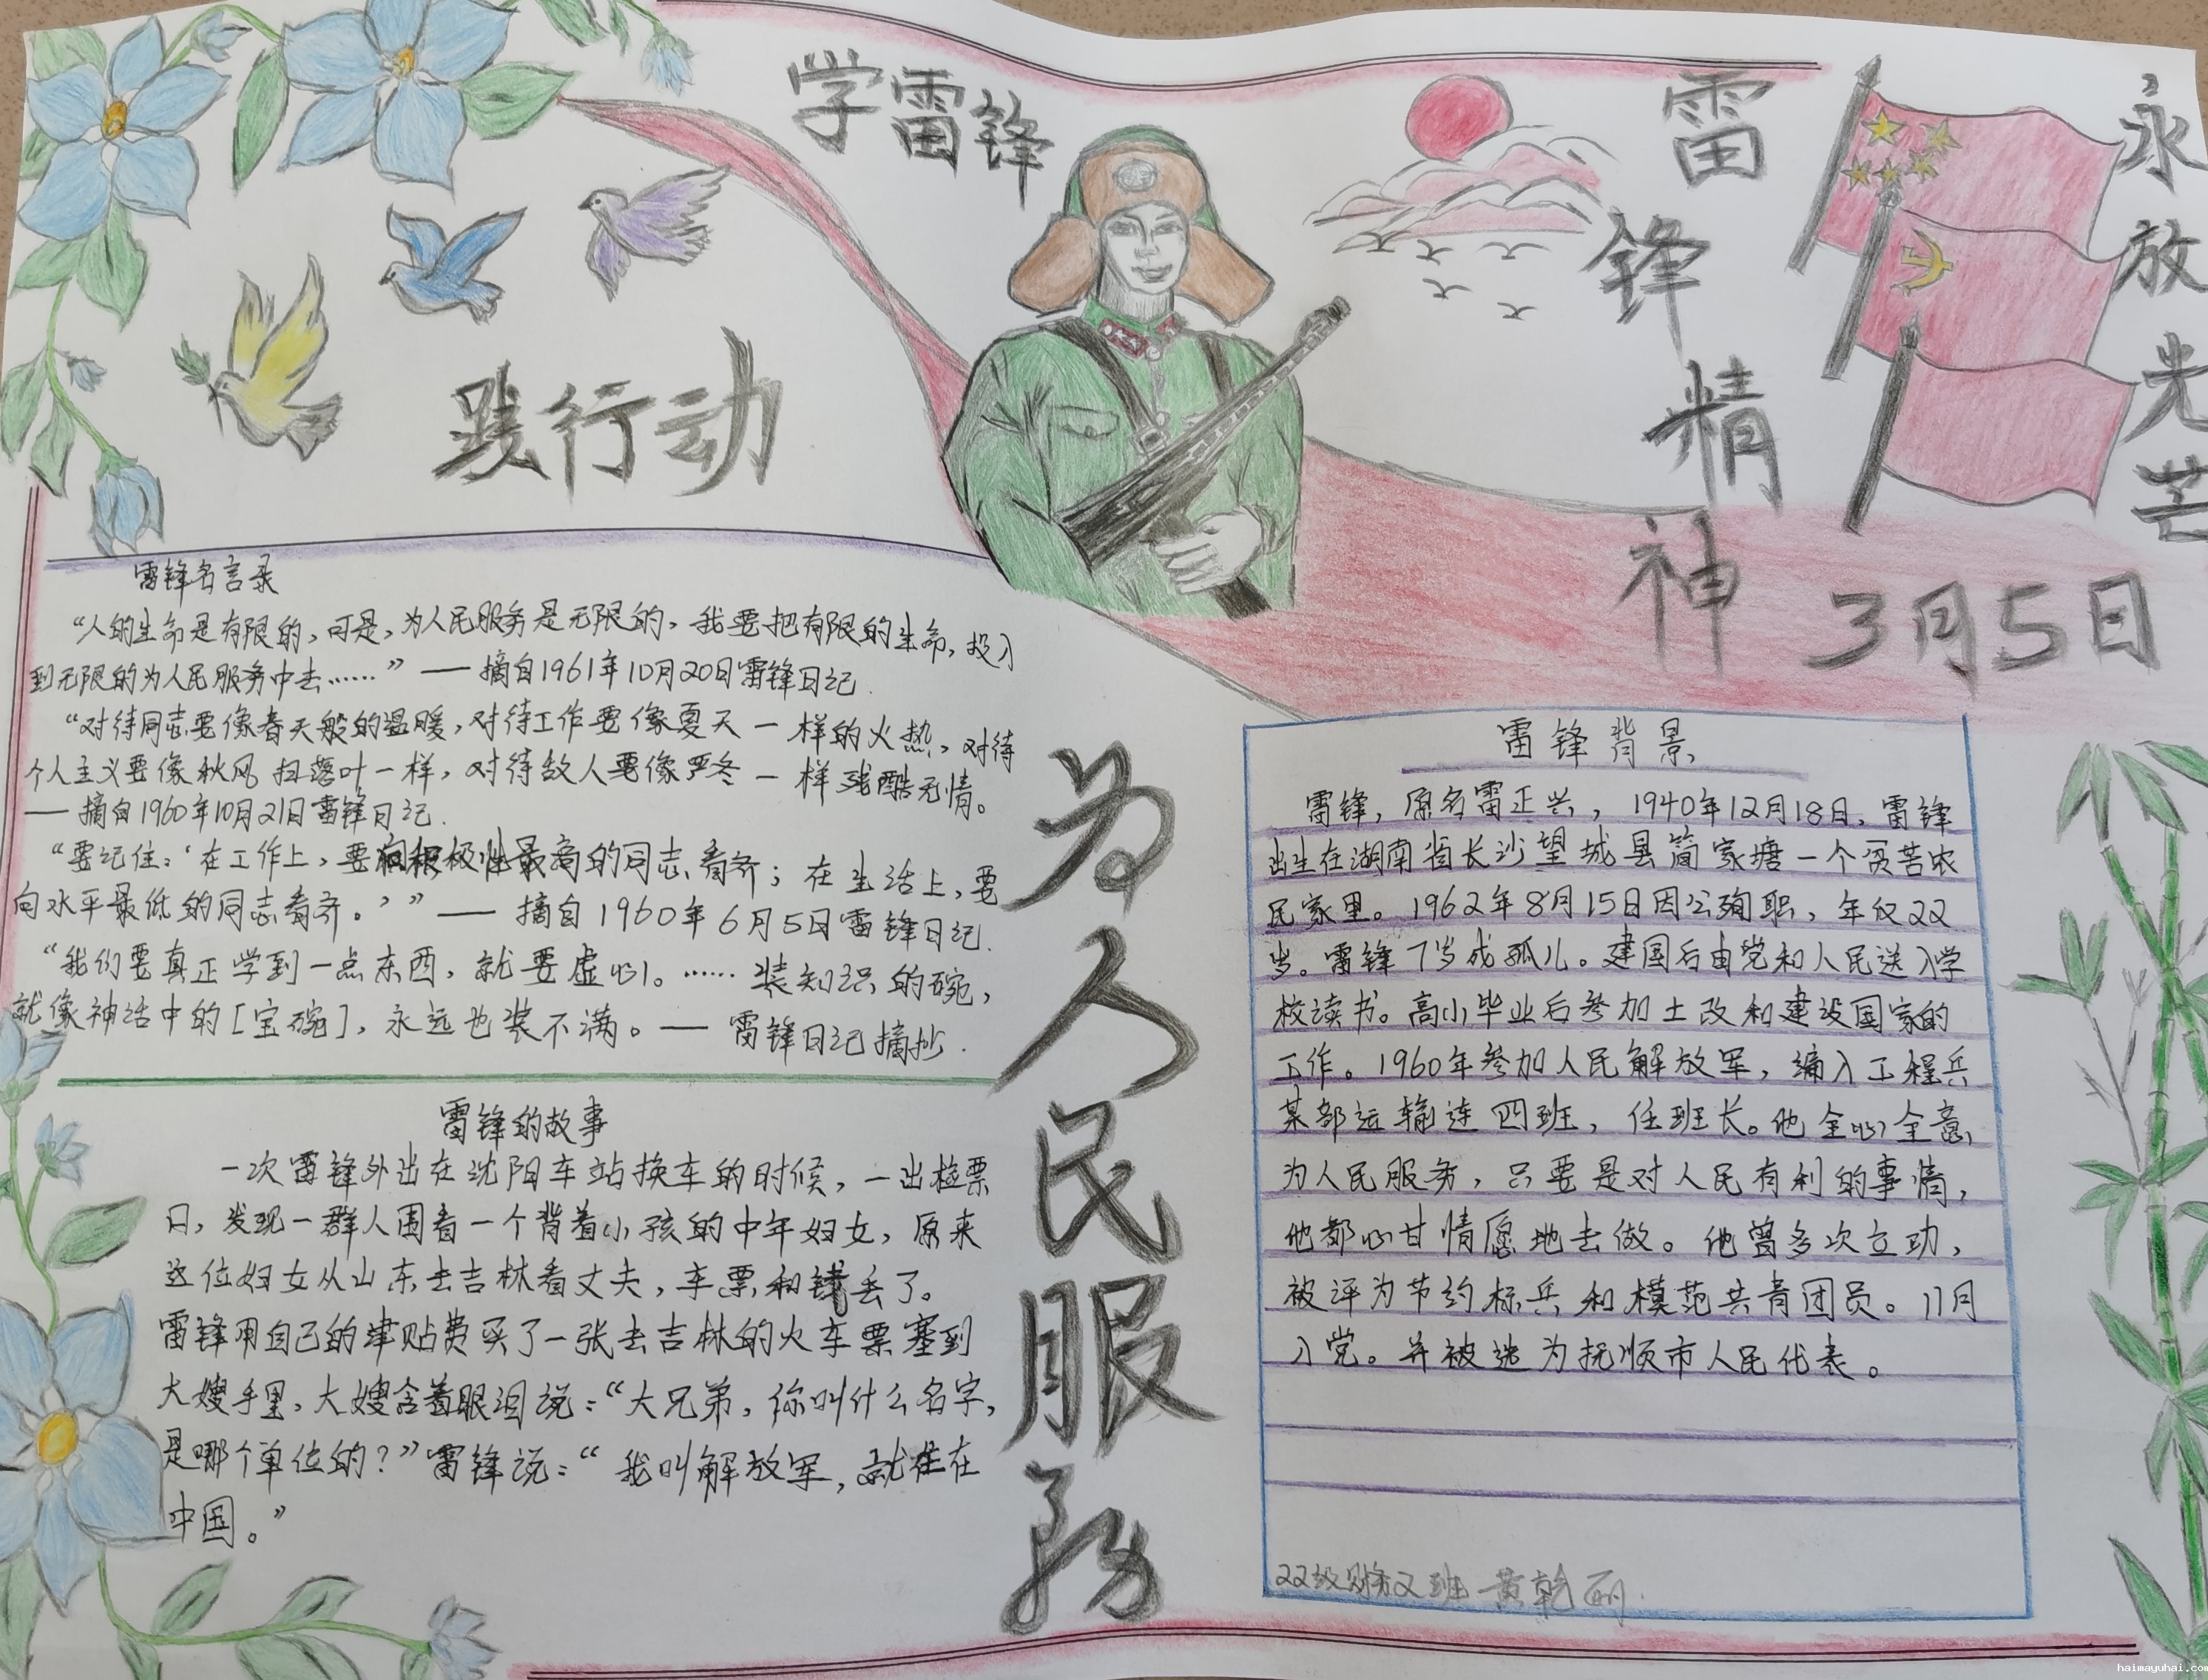 学雷锋
践行动
雷
锋
精
神
永
放
光
芒
3月5日
雷锋名言录
“人的生命是有限的，可是，为人民服务是无限的，我要把有限的生命，投入
到无限的为人民服务中去……”——摘自1961年10月20日雷锋日记.
“对待同志要像春天般的温暖，对待工作要像夏天一样的火热，对待
个人主义要像秋风扫落叶一样，对待敌人要像严冬一样残酷无情。
——摘自1960年10月21日雷锋日记.
“要记住：‘在工作上，要向积极性最高的同志看齐；在生活上，要
向水平最低的同志看齐。’”——摘自1960年6月5日雷锋日记.
“我们要真正学到一点东西，就要虚心。……装知识的碗，
就像神话中的[宝碗]，永远也装不满。——雷锋日记摘抄.
雷锋的故事
一次雷锋外出在沈阳车站换车的时候，一出检票
口，发现一群人围着一个背着小孩的中年妇女，原来
这位妇女从山东去吉林看丈夫，车票和钱丢了。
雷锋用自己的津贴费买了一张去吉林的火车票塞到
大嫂手里，大嫂含着眼泪说：“大兄弟，你叫什么名字，
是哪个单位的？”雷锋说：“我叫解放军，就住在
中国。”
为
人
民
服
务
雷锋背景
雷锋，原名雷正兴，1940年12月18日，雷锋
出生在湖南省长沙望城县简家塘一个贫苦农
民家里。1962年8月15日因公殉职，年仅22
岁。雷锋7岁成孤儿。建国后由党和人民送入学
校读书。高小毕业后参加土改和建设国家的
工作。1960年参加人民解放军，编入工程兵
某部运输连四班，任班长。他全心全意
为人民服务，只要是对人民有利的事情，
他都心甘情愿地去做。他曾多次立功，
被评为节约标兵和模范共青团员。11月
入党。并被选为抚顺市人民代表。
22级财务2班 黄乾丽.
haimayuhai.com